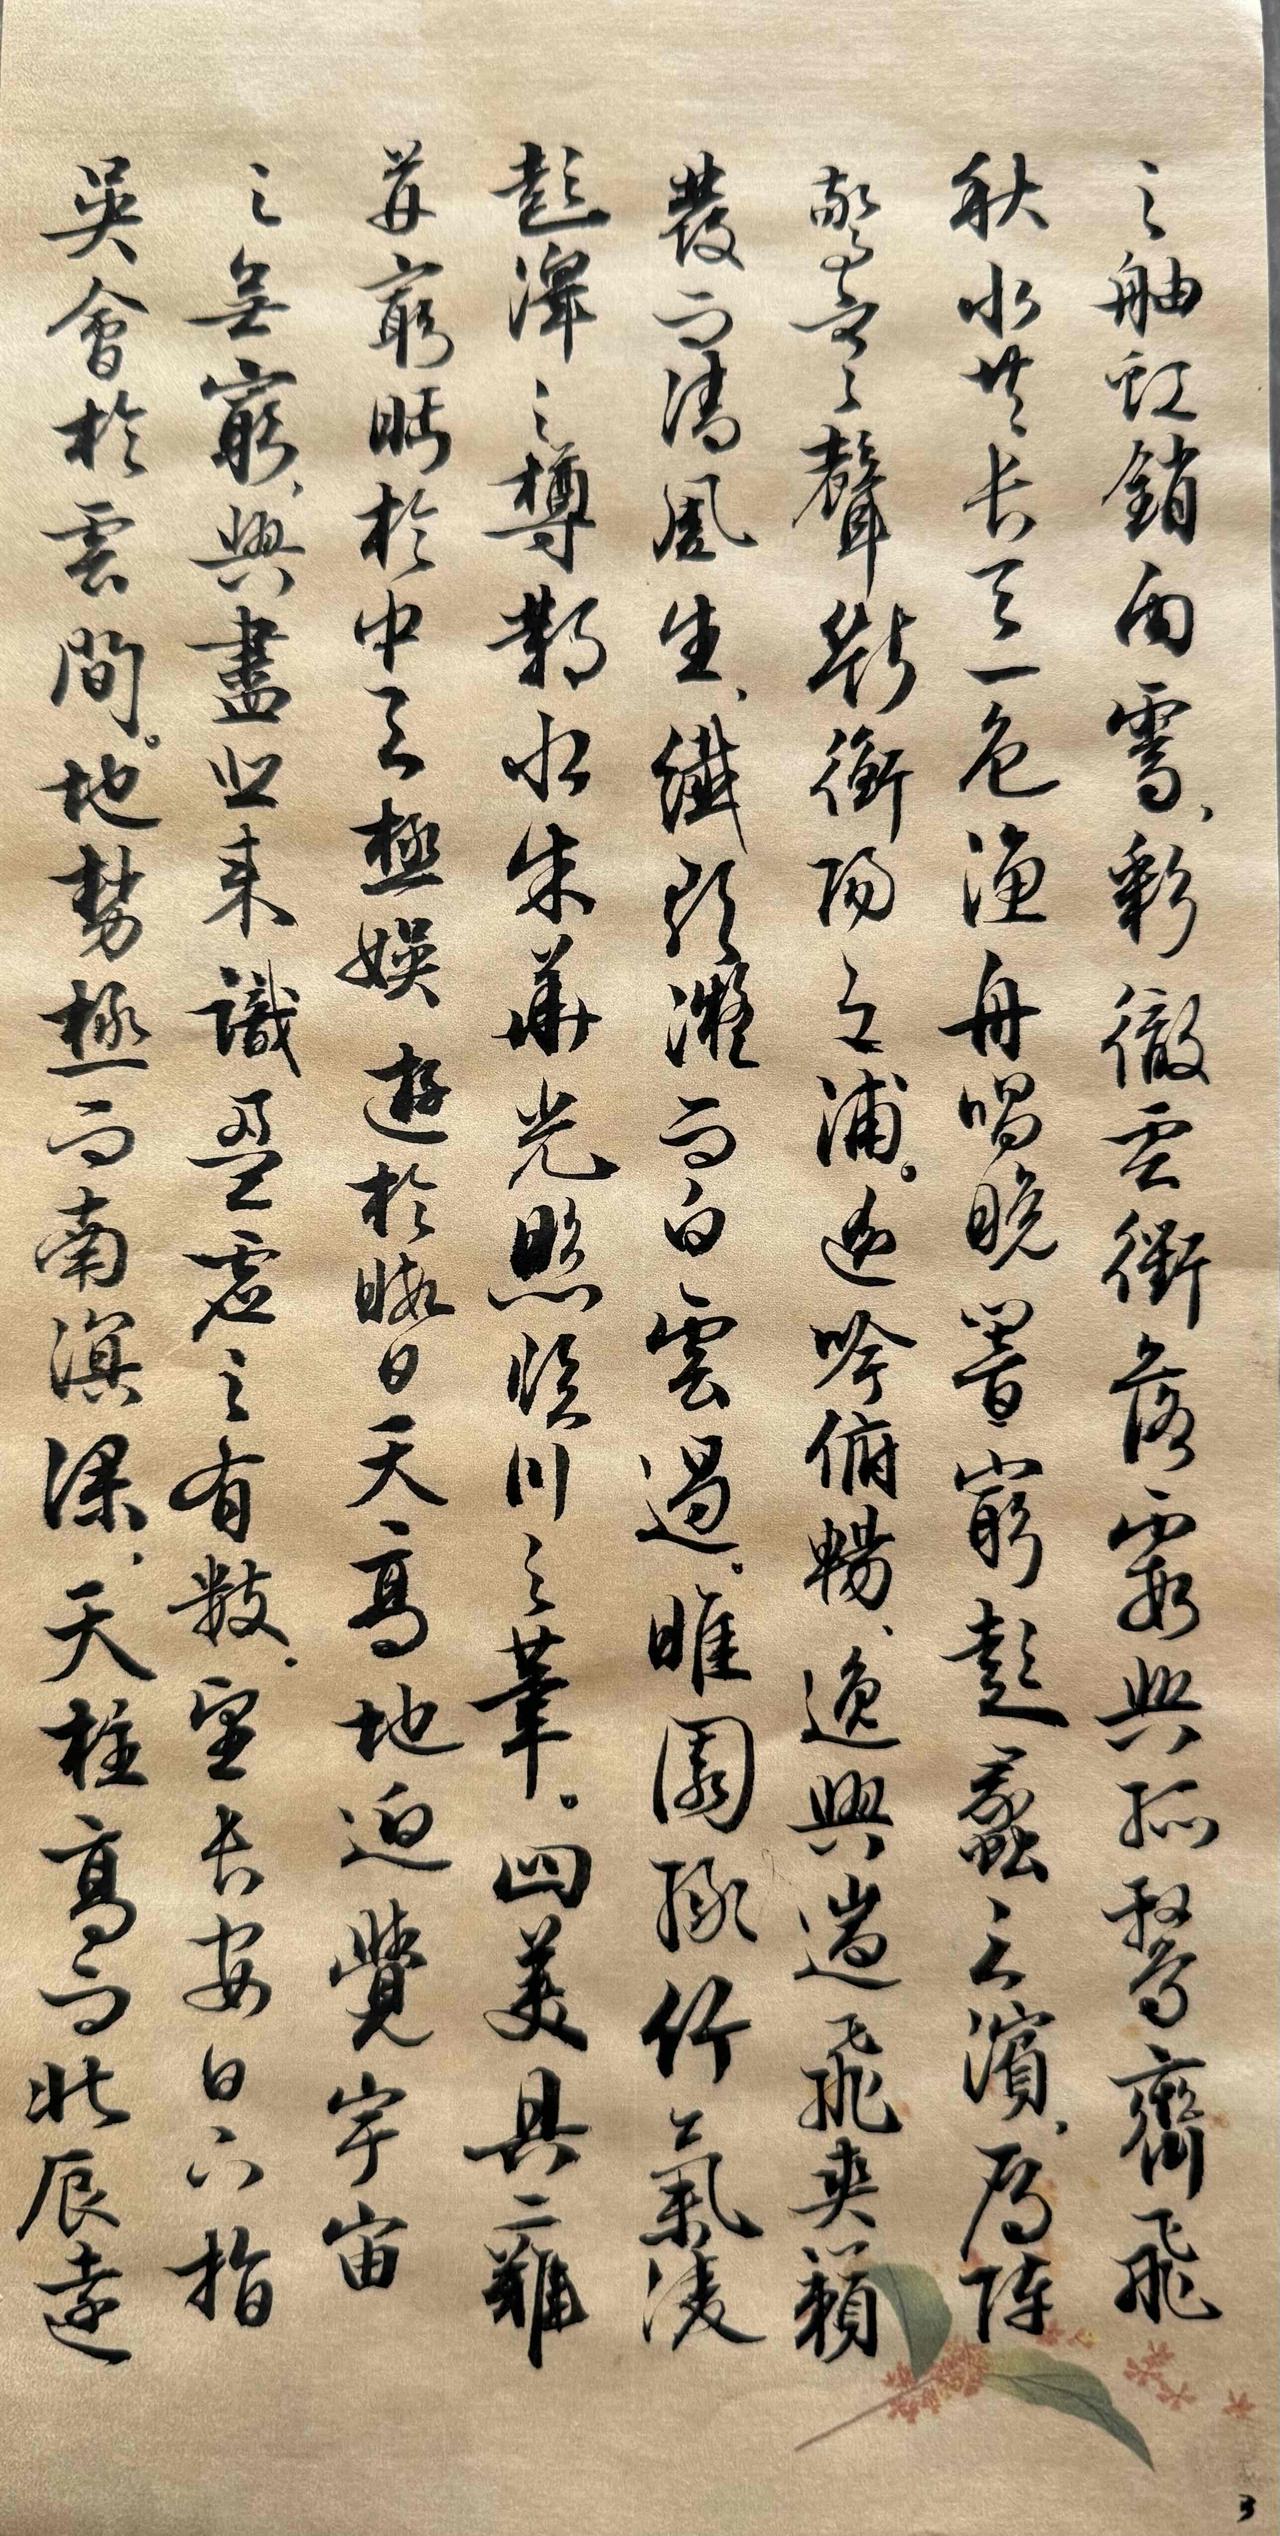 之舳虹銷雨霽、彩徹雲衢落霞與孤鶩齊飛
秋水共長天一色漁舟唱晚響窮彭蠡之濱、雁陣
驚寒之聲斷衡陽之浦。遙吟俯暢、逸興遄飛爽籟
發而清風生、纖歌凝而白雲遏。睢園綠竹氣淩
彭澤之樽鄴水朱華光照臨川之筆。四美具二難
並窮睇於中天極娛遊於暇日天高地迥覺宇宙
之無窮、興盡悲來識盈虛之有數。望長安日下指
吳會於雲間。地勢極而南溟深、天柱高而北辰遠
3